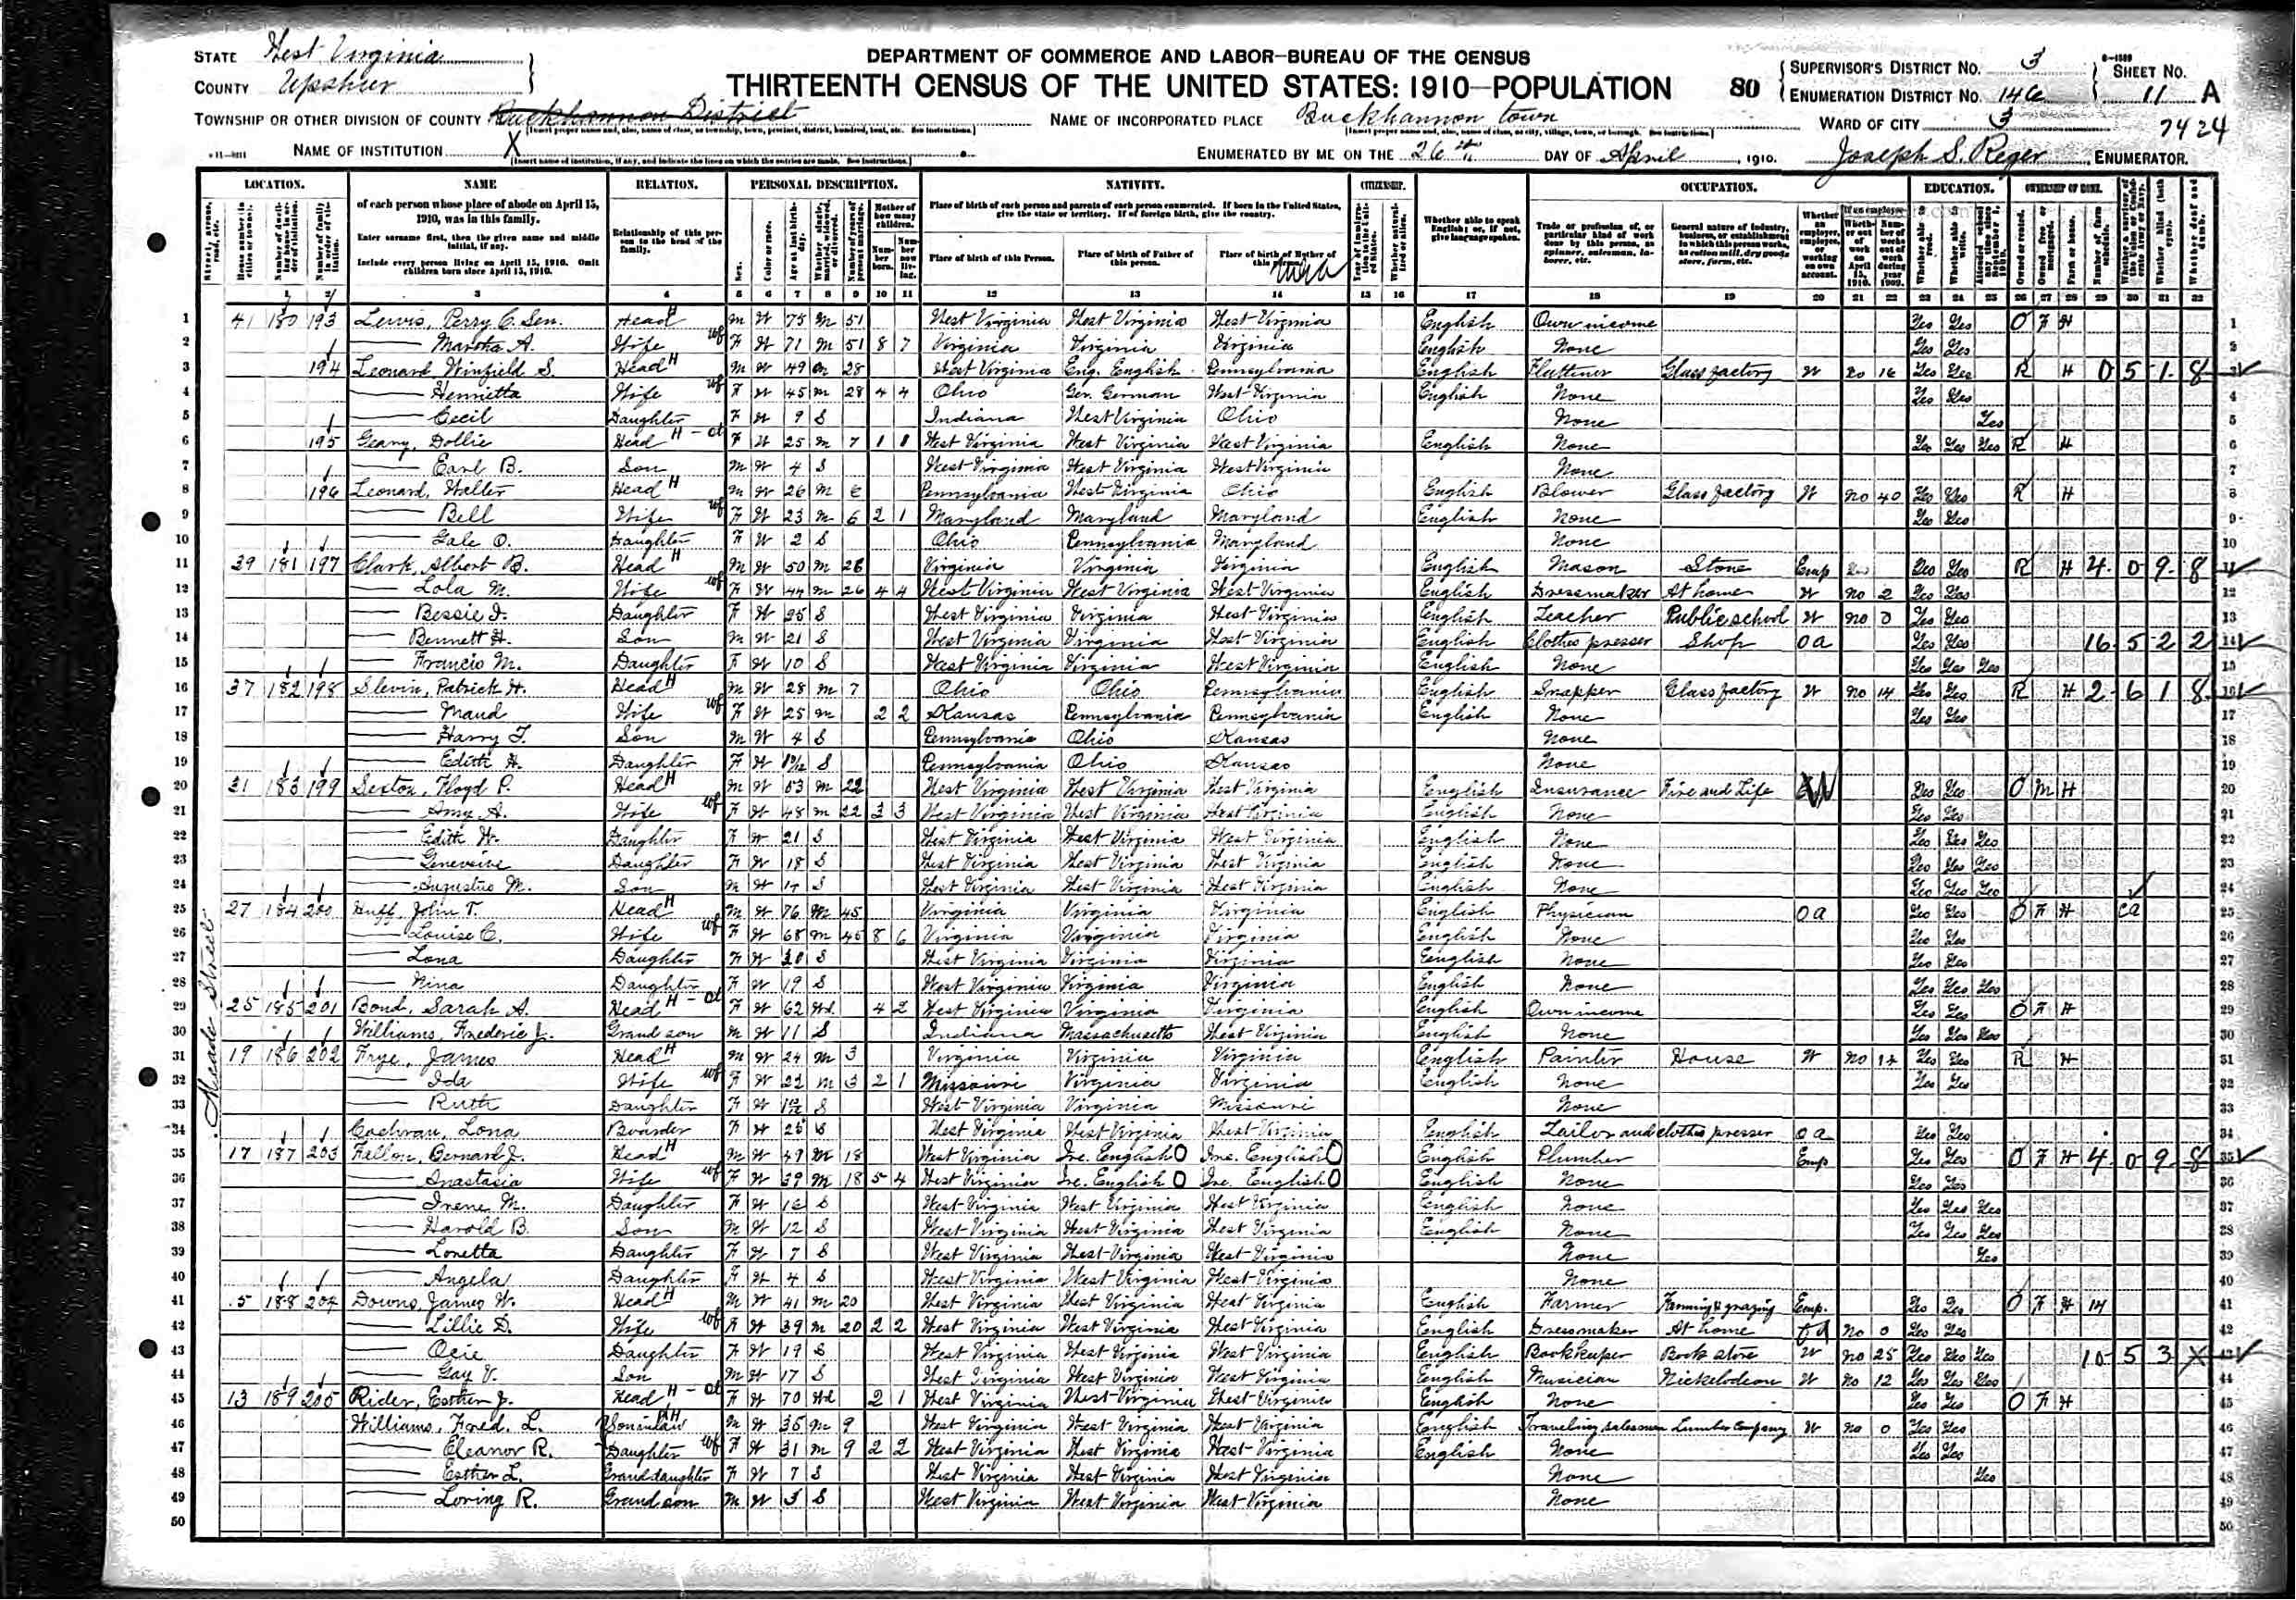 STATE West Virginia
COUNTY Upshur
DEPARTMENT OF COMMERCE AND LABOR—BUREAU OF THE CENSUS
THIRTEENTH CENSUS OF THE UNITED STATES: 1910—POPULATION 80
SUPERVISOR'S DISTRICT No. 3
ENUMERATION DISTRICT No. 146
SHEET No. 11 A
TOWNSHIP OR OTHER DIVISION OF COUNTY Buckhannon District
NAME OF INCORPORATED PLACE Buckhannon town
WARD OF CITY 3
7424
NAME OF INSTITUTION X
ENUMERATED BY ME ON THE 26th DAY OF April, 1910. Joseph S. Reger, ENUMERATOR.
LOCATION. NAME RELATION. PERSONAL DESCRIPTION. NATIVITY. CITIZENSHIP. OCCUPATION. EDUCATION. OWNERSHIP OF HOME.
of each person whose place of abode on April 15, 1910, was in this family.
Enter surname first, then the given name and middle initial, if any.
Include every person living on April 15, 1910. Omit children born since April 15, 1910.
Relationship of this person to the head of the family.
Place of birth of each person and parents of each person enumerated. If born in the United States, give the state or territory. If of foreign birth, give the country.
Place of birth of this Person. Place of birth of Father of this person. Place of birth of Mother of this person.
Whether able to speak English; or, if not, give language spoken.
Meade Street
1 41 180 193 Lewis, Perry C. Sen. Head M W 75 M 51 West Virginia West Virginia West Virginia English Own income Yes Yes O F H
2 Martha A. Wife F W 71 M 51 8 7 Virginia Virginia Virginia English None Yes Yes
3 194 Leonard, Winfield S. Head M W 49 M 28 West Virginia Eng. English Pennsylvania English Glass factory W no 16 Yes Yes R H 0 5 1 8
4 Henrietta Wife F W 45 M 28 4 4 Ohio Ger. German West Virginia English None Yes Yes
5 Cecil Daughter F W 9 S Indiana West Virginia Ohio None Yes
6 195 Geany, Dollie Head F W 25 M 7 1 1 West Virginia West Virginia West Virginia English None Yes Yes Yes R H
7 Earl B. Son M W 4 S West Virginia West Virginia West Virginia None
8 196 Leonard, Walter Head M W 26 M 6 Pennsylvania West Virginia Ohio English Blower Glass factory W no 40 Yes Yes R H
9 Bell Wife F W 23 M 6 2 1 Maryland Maryland Maryland English None Yes Yes
10 Gale O. Daughter F W 2 S Ohio Pennsylvania Maryland None
11 39 181 197 Clark, Albert B. Head M W 50 M 26 Virginia Virginia Virginia English Mason Stone Emp Yes Yes R H 4 0 9 8
12 Lola M. Wife F W 44 M 26 4 4 West Virginia West Virginia West Virginia English Dressmaker At home W no 2 Yes Yes
13 Bessie I. Daughter F W 25 S West Virginia Virginia West Virginia English Teacher Public school W no 0 Yes Yes
14 Bennett H. Son M W 21 S West Virginia Virginia West Virginia English Clothes presser Shop O a Yes Yes 16 5 2 2
15 Francis M. Daughter F W 10 S West Virginia Virginia West Virginia English None Yes Yes Yes
16 37 182 198 Slevin, Patrick H. Head M W 28 M 7 Ohio Ohio Pennsylvania English Snapper Glass factory W no 14 Yes Yes R H 2 6 1 8
17 Maud Wife F W 25 M 2 2 Kansas Pennsylvania Pennsylvania English None Yes Yes
18 Harry F. Son M W 4 S Pennsylvania Ohio Kansas None
19 Edith H. Daughter F W S Pennsylvania Ohio Kansas None
20 31 183 199 Sexton, Floyd P. Head M W 53 M 22 West Virginia West Virginia West Virginia English Insurance Fire and Life W Yes Yes O M H
21 Amy A. Wife F W 48 M 22 3 3 West Virginia West Virginia West Virginia English None Yes Yes
22 Edith W. Daughter F W 21 S West Virginia West Virginia West Virginia English None Yes Yes Yes
23 Genevieve Daughter F W 18 S West Virginia West Virginia West Virginia English None Yes Yes Yes
24 Augustus M. Son M W 17 S West Virginia West Virginia West Virginia English None Yes Yes Yes
25 27 184 200 Huff, John T. Head M W 76 M 45 Virginia Virginia Virginia English Physician O a Yes Yes O F H CA
26 Louise C. Wife F W 68 M 45 8 6 Virginia Virginia Virginia English None Yes Yes
27 Lona Daughter F W S West Virginia Virginia Virginia English None Yes Yes
28 Nina Daughter F W 19 S West Virginia Virginia Virginia English None Yes Yes Yes
29 25 185 201 Bond, Sarah A. Head F W 62 Wd 4 2 West Virginia Virginia Virginia English Own income Yes Yes O F H
30 Williams, Frederic J. Grand son M W 11 S Indiana Massachusetts West Virginia English None Yes Yes Yes
31 19 186 202 Frye, James Head M W 24 M 3 Virginia Virginia Virginia English Painter House W no 12 Yes Yes R H
32 Ida Wife F W 22 M 3 2 1 Missouri Virginia Virginia English None Yes Yes
33 Ruth Daughter F W S West Virginia Virginia Missouri None
34 Cochran, Lona Boarder F W 25 S West Virginia West Virginia West Virginia English Tailor and clothes presser O a Yes Yes
35 17 187 203 Fallon, Bernard J. Head M W 49 M 18 West Virginia Ire. English Ire. English English Plumber Emp Yes Yes O F H 4 0 9 8
36 Anastasia Wife F W 39 M 18 5 4 West Virginia Ire. English Ire. English English None Yes Yes
37 Irene M. Daughter F W 16 S West Virginia West Virginia West Virginia English None Yes Yes Yes
38 Harold B. Son M W 12 S West Virginia West Virginia West Virginia English None Yes Yes Yes
39 Loretta Daughter F W 7 S West Virginia West Virginia West Virginia None Yes
40 Angela Daughter F W 4 S West Virginia West Virginia West Virginia None
41 15 188 204 Downs, James W. Head M W 41 M 20 West Virginia West Virginia West Virginia English Farmer Farming & grazing Emp. Yes Yes O F H 14
42 Lillie D. Wife F W 39 M 20 2 2 West Virginia West Virginia West Virginia English Dressmaker At home no 0 Yes Yes
43 Ocie Daughter F W 19 S West Virginia West Virginia West Virginia English Bookkeeper Book store W no 25 Yes Yes Yes 10 5 3 X
44 Gay V. Son M W 17 S West Virginia West Virginia West Virginia English Musician Nickelodeon W no 12 Yes Yes Yes
45 13 189 205 Rider, Esther J. Head F W 70 Wd 2 1 West Virginia West Virginia West Virginia English None Yes Yes O F H
46 Williams, Fred. L. Son in law M W 35 M 9 West Virginia West Virginia West Virginia English Traveling salesman Lumber Company W no 0 Yes Yes
47 Eleanor R. Daughter F W 31 M 9 2 2 West Virginia West Virginia West Virginia English None Yes Yes
48 Esther L. Granddaughter F W 7 S West Virginia West Virginia West Virginia None Yes
49 Loring R. Grand son M W 3 S West Virginia West Virginia West Virginia None
50